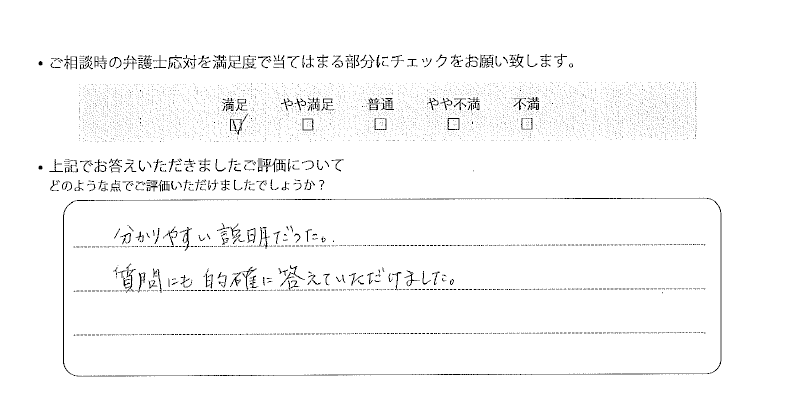 ・ご相談時の弁護士応対を満足度で当てはまる部分にチェックをお願い致します。
満足 やや満足 普通 やや不満 不満
☑ □ □ □ □
・上記でお答えいただきましたご評価について
どのような点でご評価いただけましたでしょうか？
分かりやすい説明だった。
質問にも的確に答えていただけました。